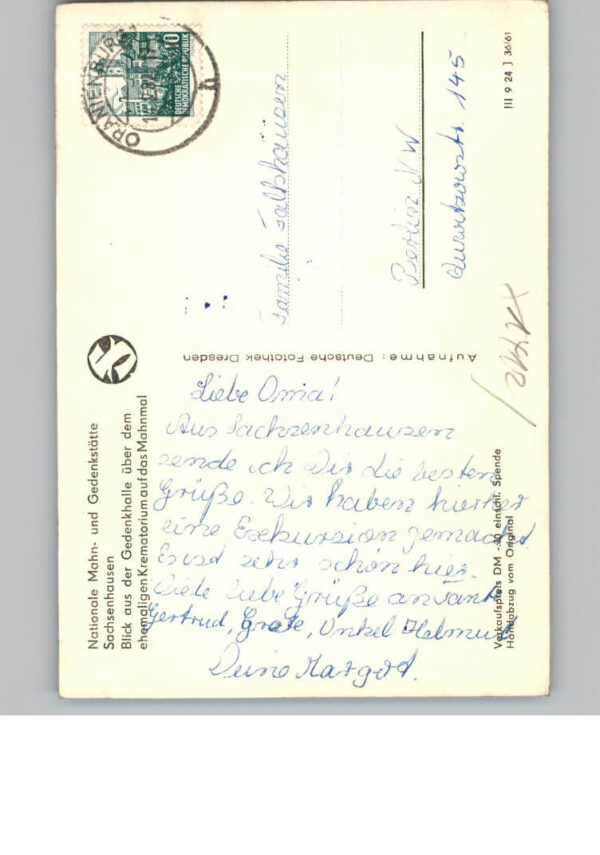 Nationale Mahn- und Gedenkstätte
Sachsenhausen
Blick aus der Gedenkhalle über dem
ehemaligen Krematorium auf das Mahnmal
Liebe Oma!
Aus Sachsenhausen
sende ich Dir die besten
Grüße. Wir haben hierher
eine Exkursion gemacht
Es ist sehr schön hier.
Viele liebe Grüße an Tante
Gertrud, Grete, Onkel Helmut
Deine Margord.
Aufnahme: Deutsche Fotothek Dresden
Verkaufspreis DM -,30 einschl. Spende
Handabzug vom Original
ORANIENBURG 1
DEUTSCHE
DEMOKRATISCHE REPUBLIK
10
Familie
Berlin NW
Quitzowstr. 145
III 9 24 J 36/61